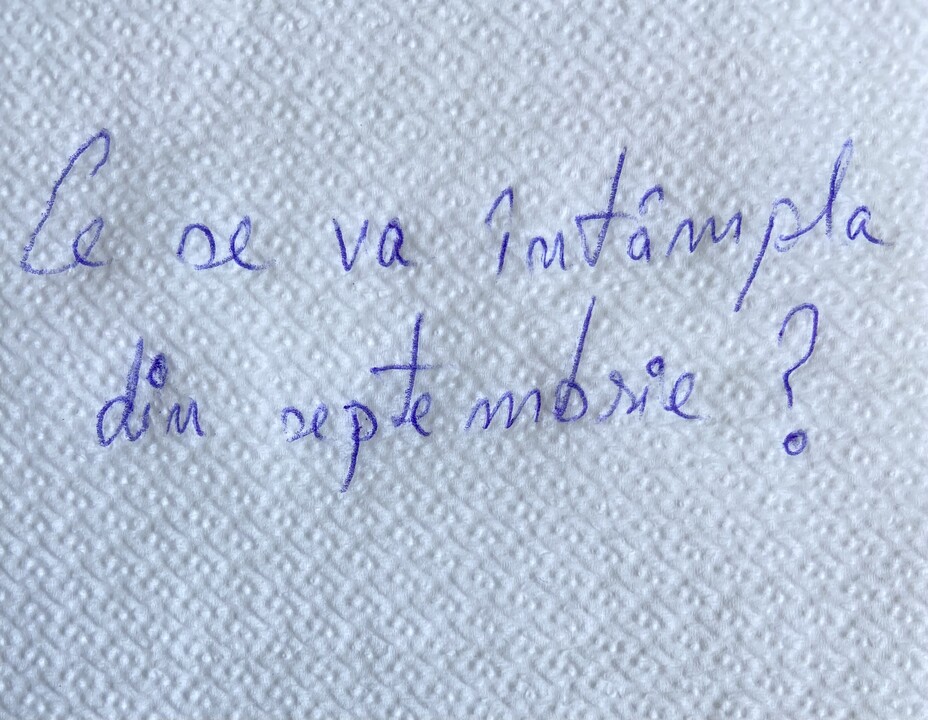 Ce se va întâmpla
din septembrie ?